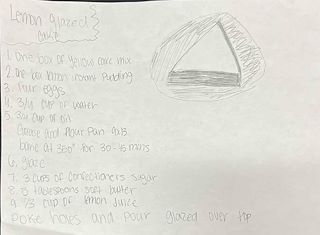 Lemon glazed
cake
1. One box of yellow cake mix
2. One box lemon instant Pudding
3. Four eggs
4. 3/4 cup of water
5. 3/4 cup of oil
Grease and flour Pan 9x13
bake at 350° for 30-45 mins
6. glaze
7. 3 cups of confectioners sugar
8. 3 tablespoons soft butter
9. 1/3 cup of lemon Juice
Poke holes and pour glazed over top